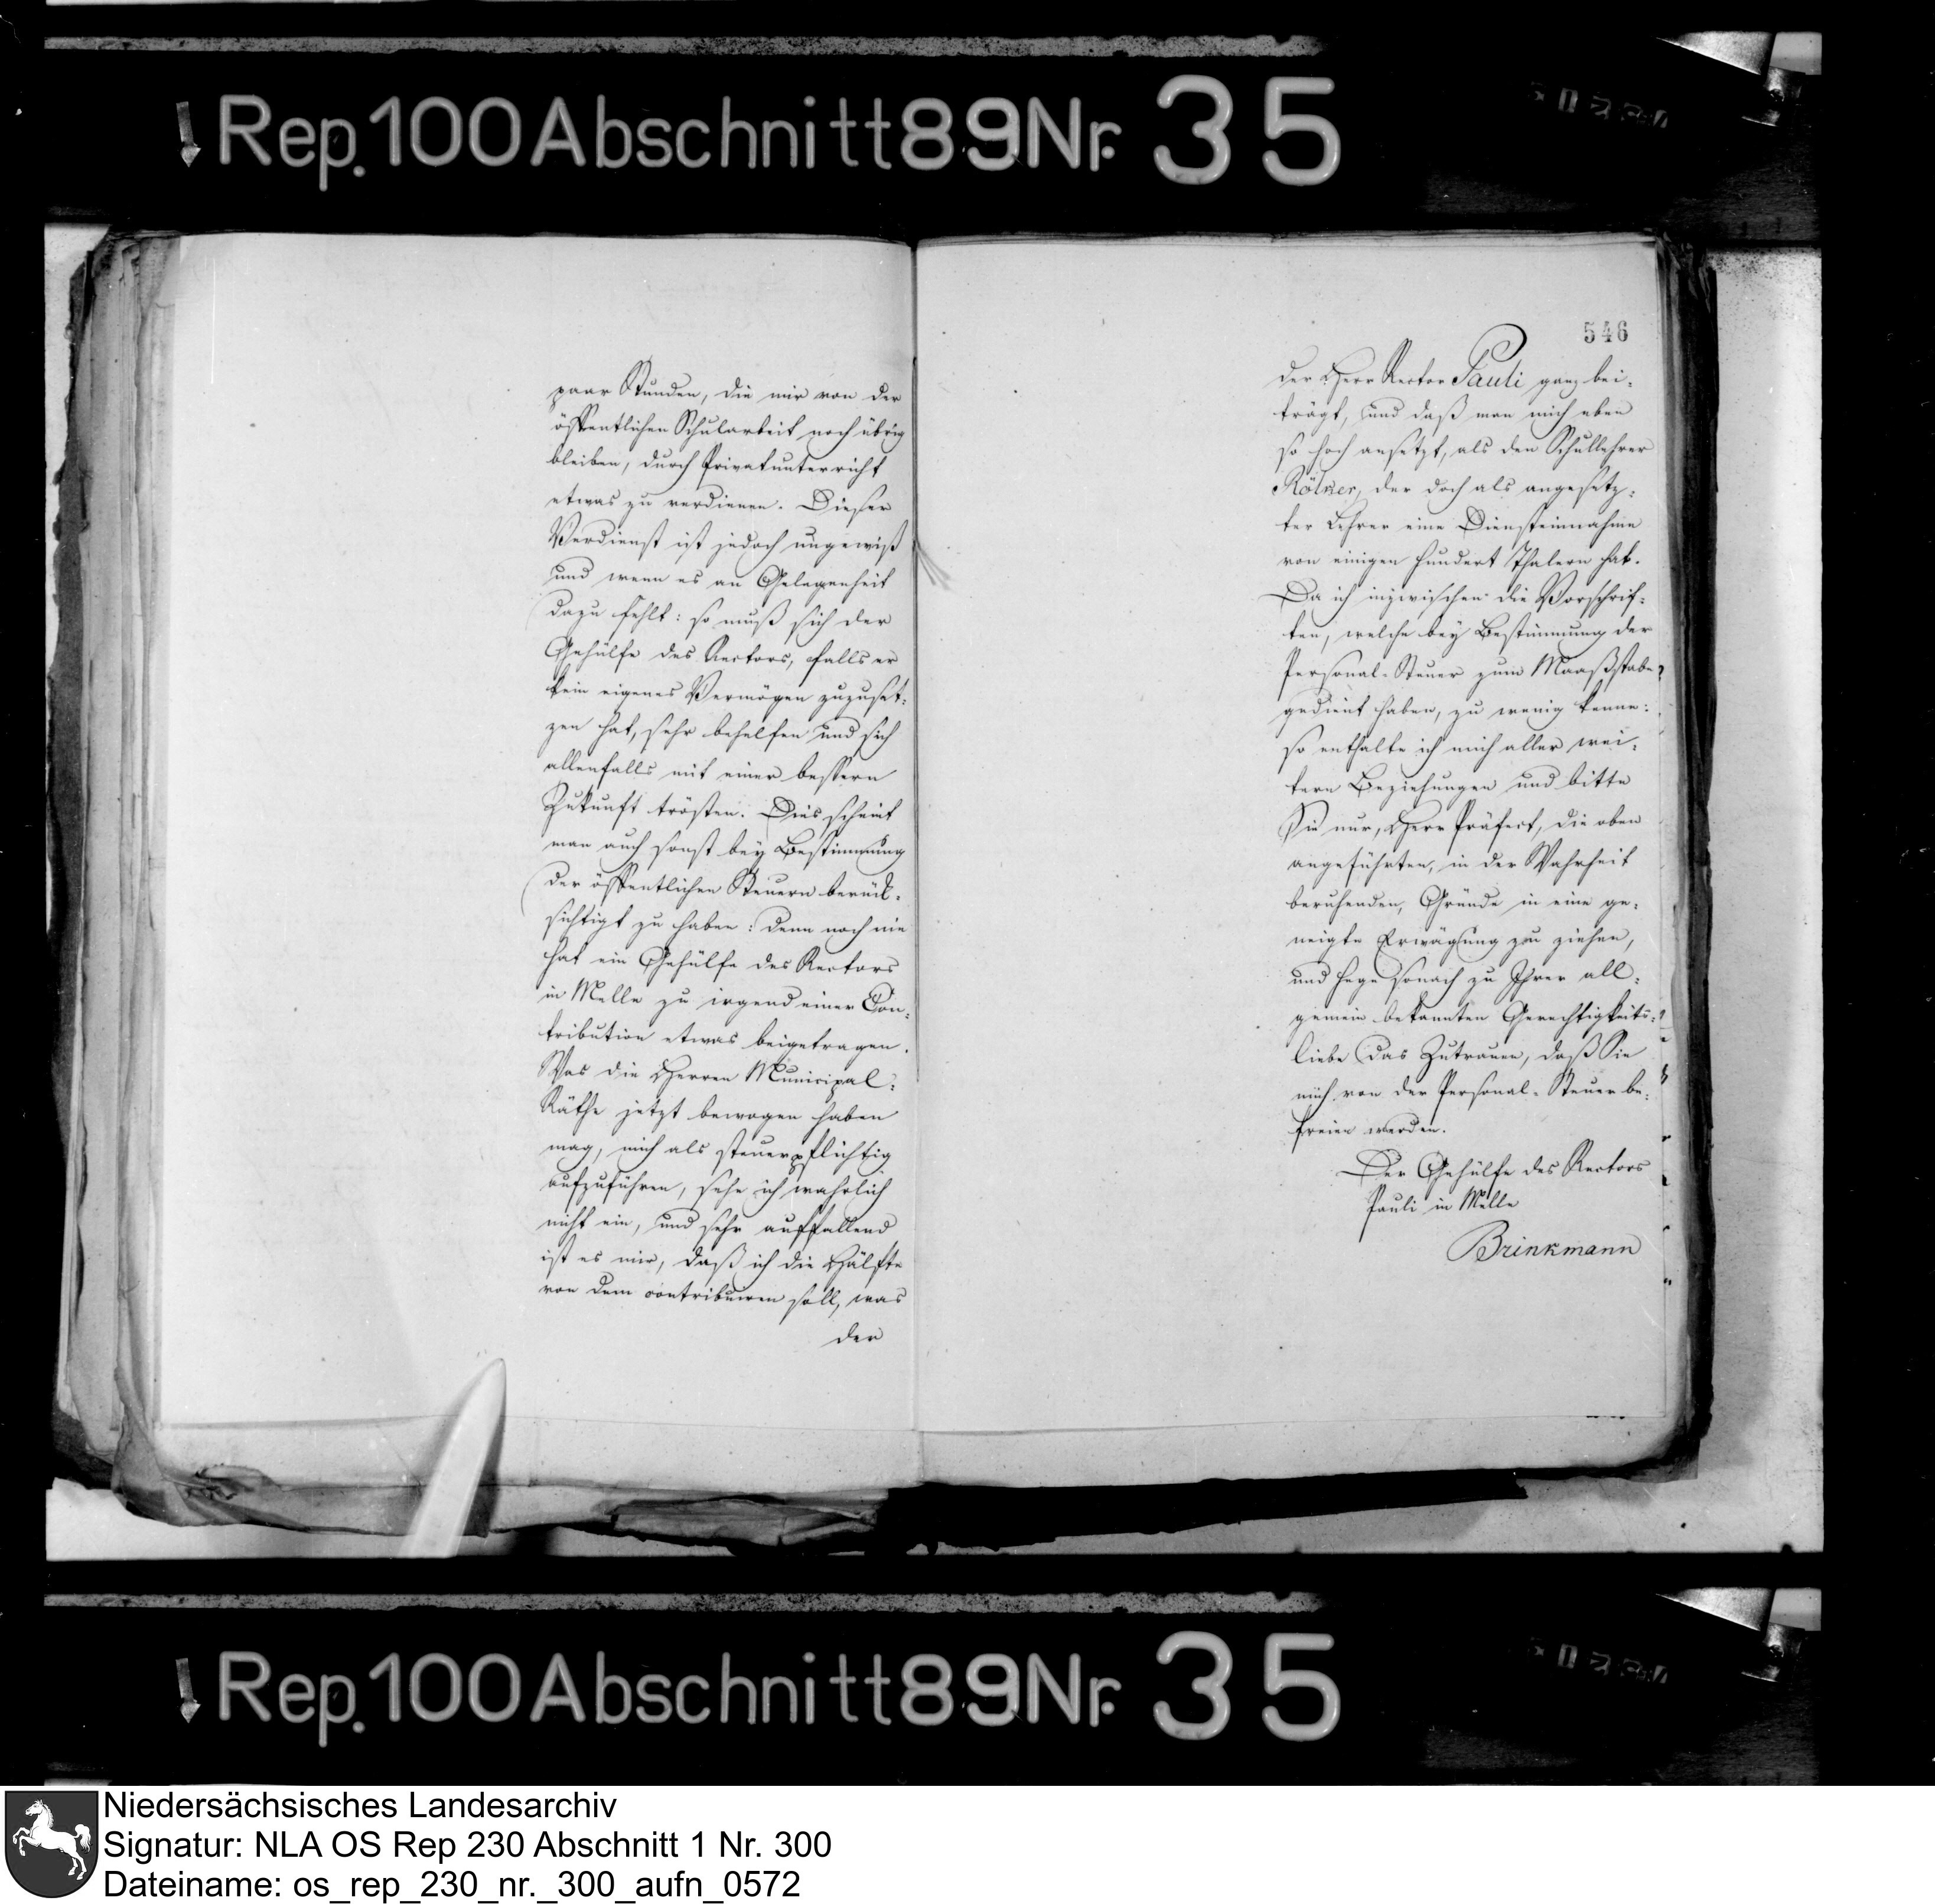 Rep. 100 Abschnitt 89 Nr. 35
paar Stunden, die mir von der
öffentlichen Schularbeit noch übrig
bleiben, durch Privatunterricht
etwas zu verdienen. Dieser
Verdienst ist jedoch ungewiß
und wenn es an Gelegenheit
dazu fehlt: so muß sich der
Gehülfe des Rectors, falls er
kein eigenes Vermögen zuzuset-
zen hat, sehr behelfen und sich
allenfalls mit einer bessern
Zukunft trösten. Dies scheint
man auch sonst bey Bestimmung
der öffentlichen Steuern berück-
sichtigt zu haben: denn noch nie
hat ein Gehülfe des Rectors
in Melle zu irgend einer Con-
tribution etwas beigetragen.
Was die Herren Municipal-
Räthe jetzt bewogen haben
mag, mich als steuerpflichtig
aufzuführen, sehe ich wahrlich
nicht ein, und sehr auffallend
ist es mir, daß ich die Hälfte
von dem contribuiren soll, was
der
546
der Herr Rector Pauli ganz bei-
trägt, und daß man mich eben
so hoch ansetzt, als den Schullehrer
Rölker, der doch als angesetz-
ter Lehrer eine Diensteinnahme
von einigen hundert Thalern hat.
Da ich inzwischen die Vorschrif-
ten, welche bey Bestimmung der
Personal-Steuer zum Maaßstabe
gedient haben, zu wenig kenne:
so enthalte ich mich aller wei-
tern Beziehungen und bitte
Sie nur, Herr Präfect, die oben
angeführten, in der Wahrheit
beruhenden, Gründe in eine ge-
neigte Erwägung zu ziehen,
und hege sonach zu Ihrer all-
gemein bekannten Gerechtigkeits-
liebe das Zutrauen, daß Sie
mich von der Personal-Steuer be-
freien werden.
Der Gehülfe des Rectors
Pauli in Melle
Brinkmann
Rep. 100 Abschnitt 89 Nr. 35
Niedersächsisches Landesarchiv
Signatur: NLA OS Rep 230 Abschnitt 1 Nr. 300
Dateiname: os_rep_230_nr._300_aufn_0572